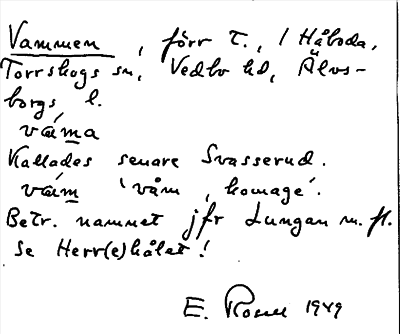 Vammen, förr T., i Håboda,
Torrskogs sn, Vedbo hd, Älvs-
borgs l.
våma
Kallades senare Svasserud.
våm 'våm, komage'.
Betr. namnet jfr Lungan m. fl.
Se Herr(e)kålet!
E. Rosell 1949